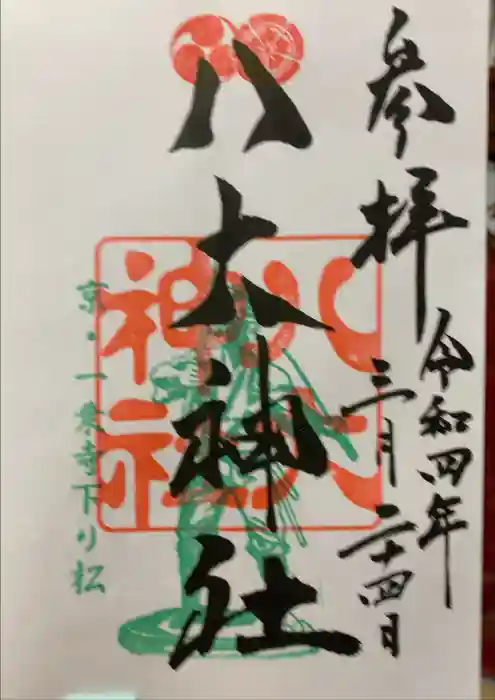 参拝
令和四年
三月二十四日
八大神社
八大神社
京・一乗寺下り松